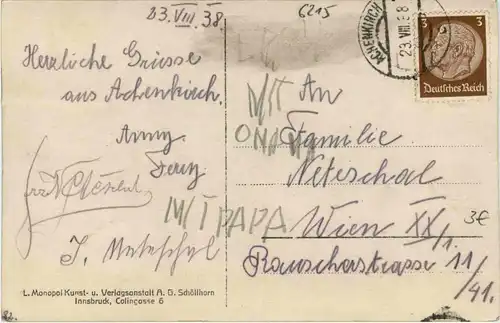 23.VIII.38.
6215
Herzliche Grüsse
aus Achenkirch.
Anny
Ferry
ACHENKIRCH
23.VIII.38
3 3
Deutsches Reich
MIT
OMAMA
An
Familie
Neteschal
Wien XX/1.
Rauscherstrasse 11/
41.
3€
MIT PAPA
L. Monopol Kunst- u. Verlagsanstalt A. G. Schöllhorn
Innsbruck, Colingasse 6